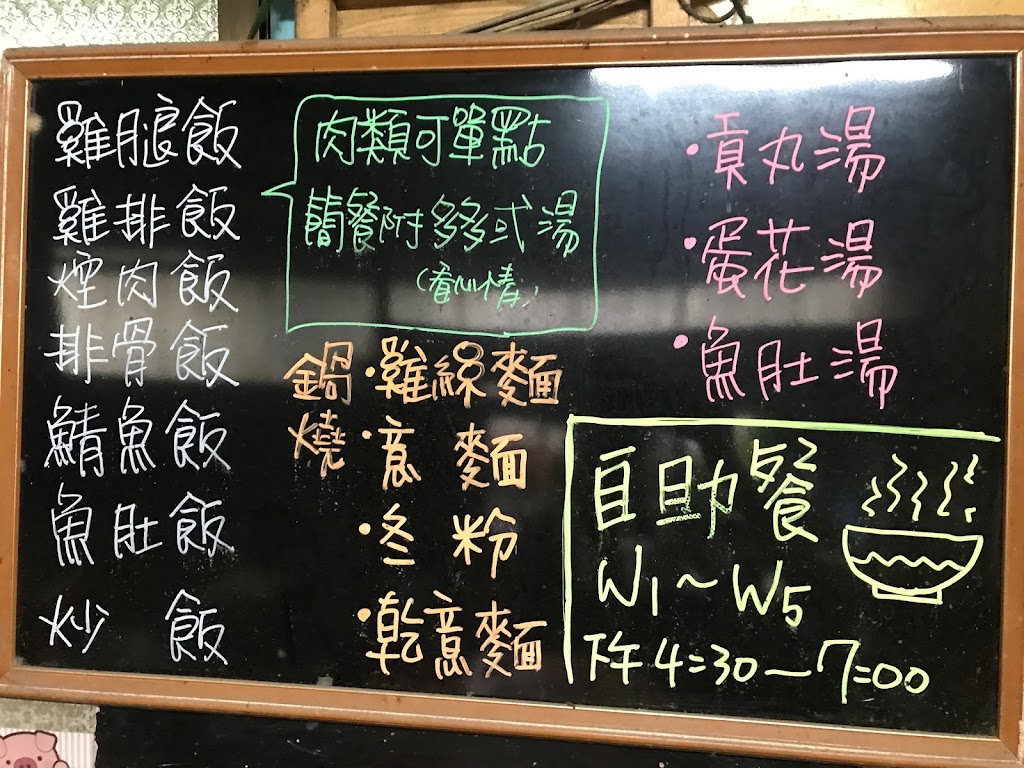 雞腿飯
雞排飯
焢肉飯
排骨飯
鯖魚飯
魚肚飯
炒 飯
肉類可單點
簡餐附多多或湯
(看心情)
鍋燒
·雞絲麵
·意 麵
·冬 粉
·乾意麵
·貢丸湯
·蛋花湯
·魚肚湯
自助餐
W1~W5
下午4:30—7:00